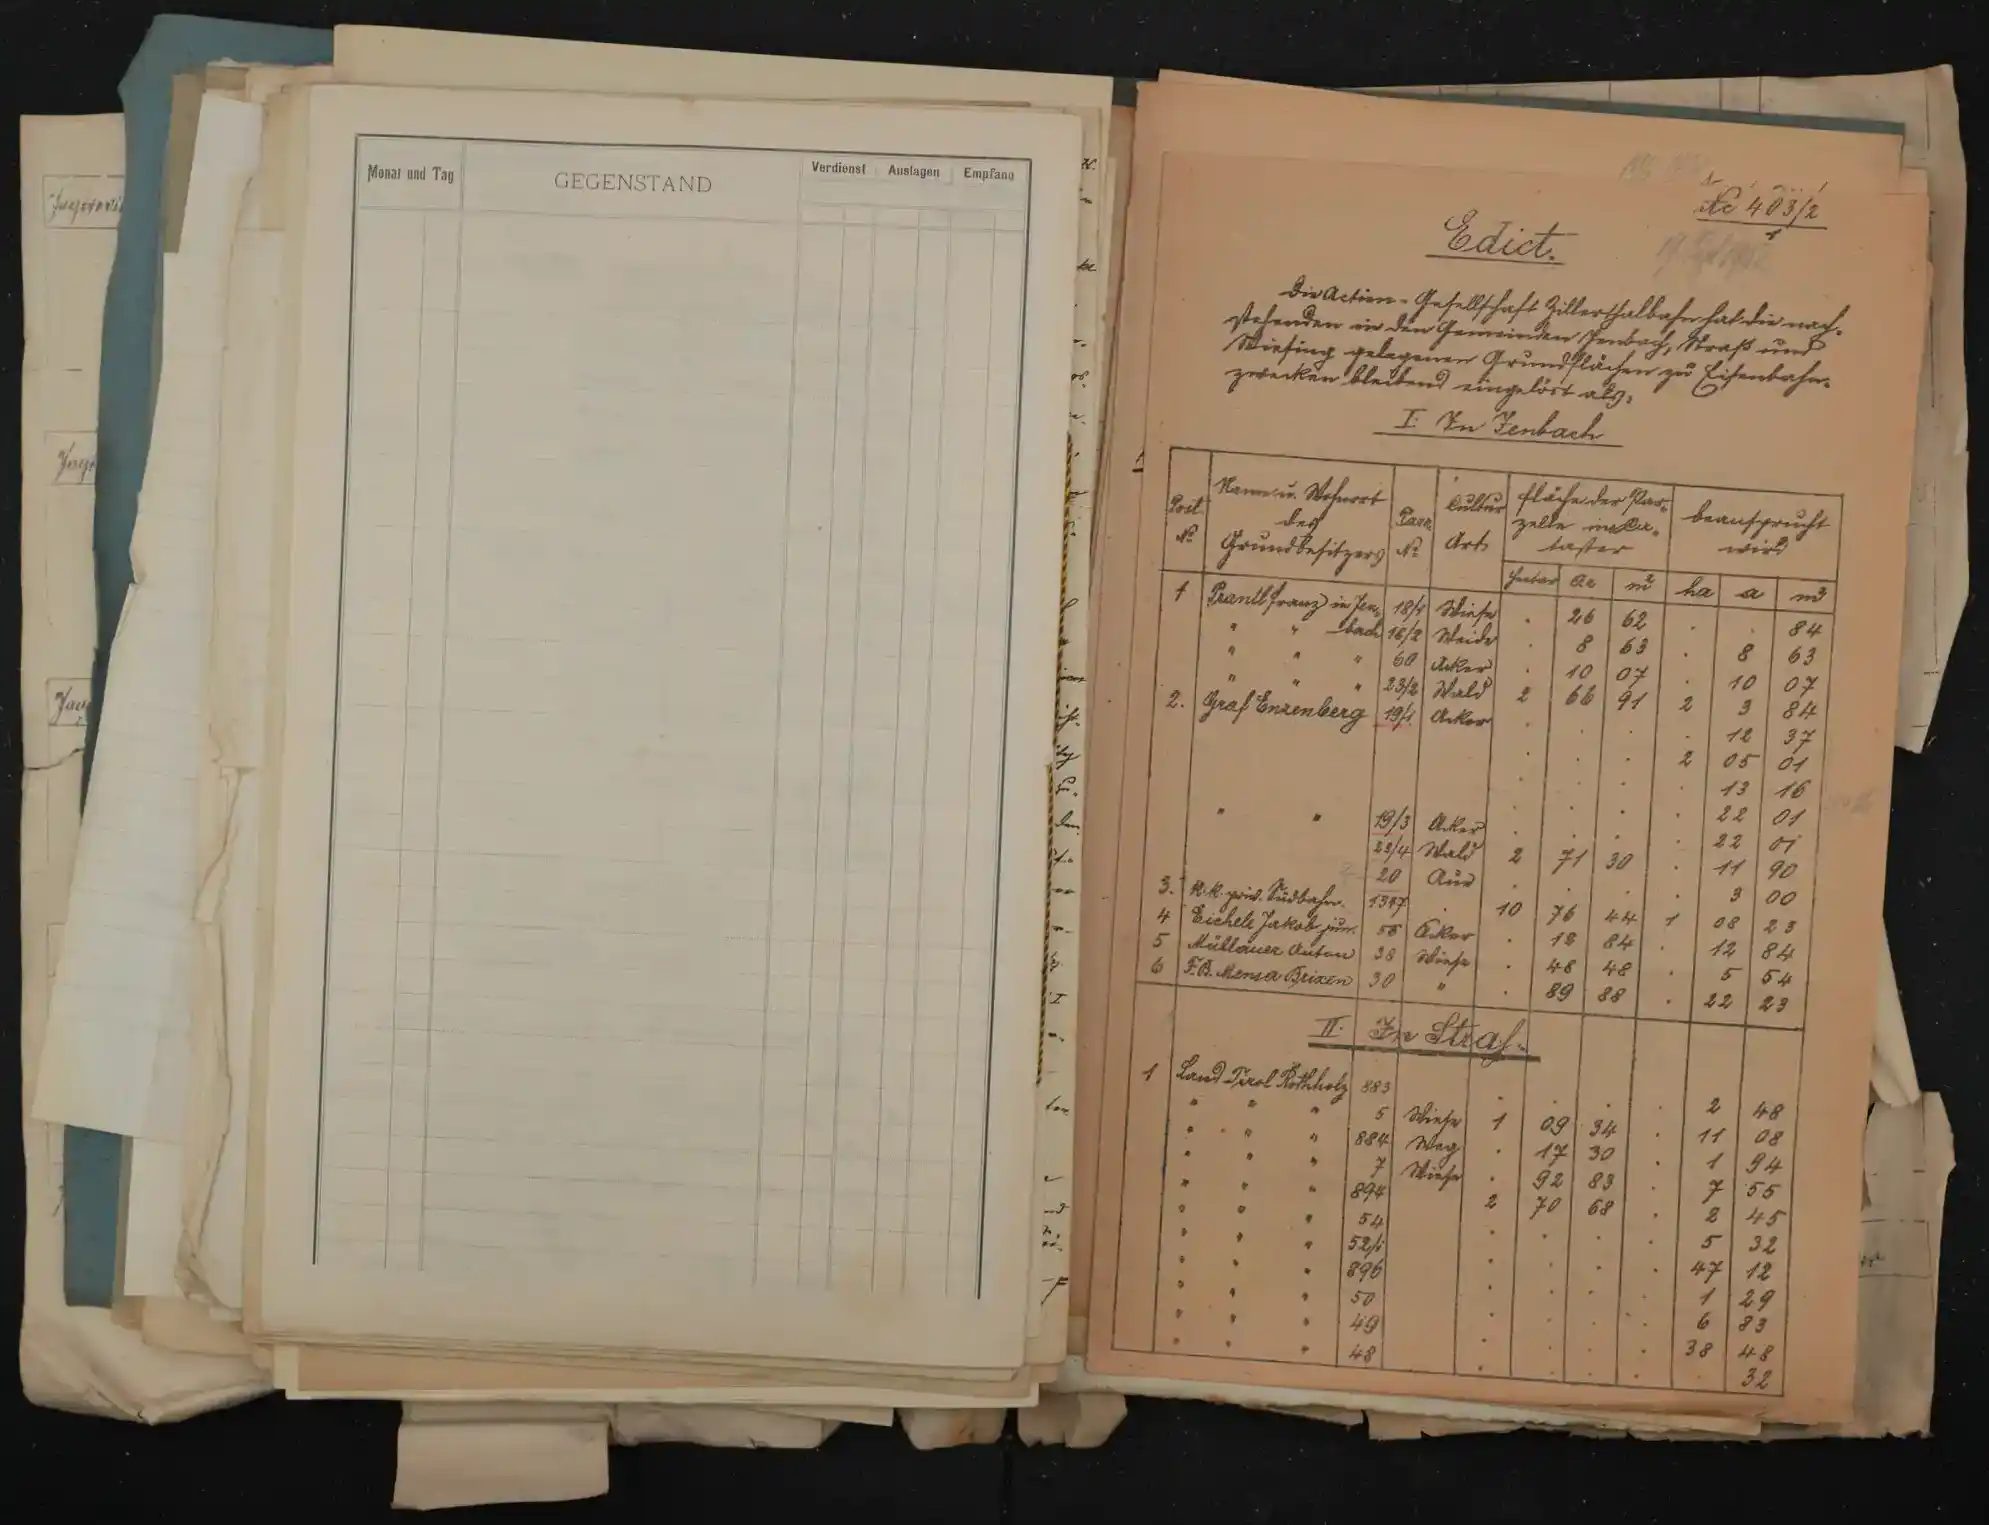 Monat und Tag
GEGENSTAND
Verdienst
Auslagen
Empfang
Nc 403/2
1
Edict.
Die Actien-Gesellschaft Zillerthalbahn hat die nach-
stehenden in den Gemeinden Jenbach, Straß und
Wiesing gelegenen Grundflächen zu Eisenbahn-
zwecken bleibend eingelöst als:
I. In Jenbach
Post No Name u. Wohnort des Grundbesitzers Parz. No Cultur Art Fläche der Par- zelle im Ca- taster beansprucht wird
Hectar Ar m² ha a m²
1 Prantl Franz in Jen- 18/1 Wiese . 26 62 . . 84
" " bach 16/2 Weide . 8 63 . 8 63
" " " 60 Acker . 10 07 . 10 07
" " " 23/2 Wald 2 66 91 2 3 84
2. Graf Enzenberg 19/1 Acker . . . . 12 37
. . . 2 05 01
. . . . 13 16
. . . . 22 01
" " 19/3 Acker . . . . 22 01
23/4 Wald 2 71 30 . 11 90
20 Aue . . . . 3 00
3. k. k. priv. Südbahn. 1317 . 10 76 44 1 08 23
4 Eichele Jakob jun. 55 Acker . 12 84 . 12 84
5 Müllauer Anton 38 Wiese . 48 48 . 5 54
6 F. B. Mensa Brixen 30 " . 89 88 . 22 23
II. In Straß.
1 Land Tirol Rothholz 883 . . . . 2 48
" " " 5 Wiese 1 09 34 . 11 08
" " " 884 Weg . 17 30 . 1 94
" " " 7 Wiese . 92 83 . 7 55
" " " 894 2 70 68 . 2 45
" " " 54 . . . . 5 32
" " " 52/1 . . . . 47 12
" " " 896 . . . . 1 29
" " " 50 . . . . 6 83
" " " 49 . . . . 38 48
" " " 48 . . . . . 32